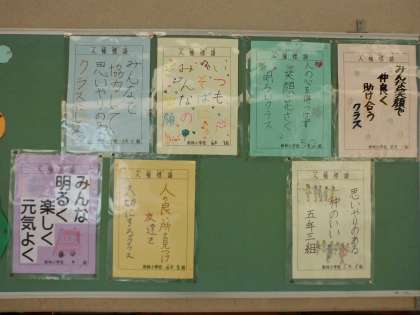 人権標語
みんなで
協力して
思いやりのある
クラスにしよう
人権標語
いつも心
そばに
みんなの
笑顔
人権標語
人の心を傷つけず
笑顔花さく
明るいクラス
人権標語
みんな笑顔で
仲良く
助け合う
クラス
人権標語
みんな
明るく
楽しく
元気よく
人権標語
人の良い所を見つけ
友達を
大切にするクラス
人権標語
思いやりのある
仲のいい
五年三組